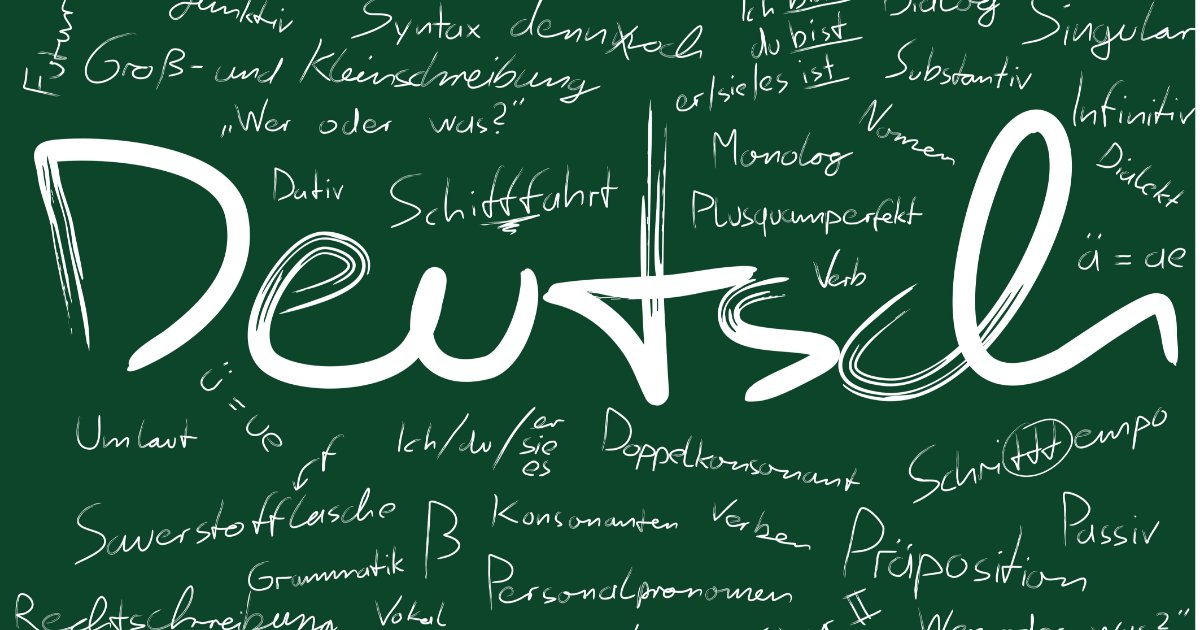 Konjunktiv
Syntax dennoch
Ich bin
Dialog
Singular
du bist
Groß- und Kleinschreibung
er/sie/es ist
Substantiv
Infinitiv
„Wer oder was?"
Nomen
Monolog
Dialekt
Dativ
Schifffahrt
Plusquamperfekt
ä = ae
Verb
Deutsch
ü = ue
Umlaut
Ich/du/er
sie
es
Doppelkonsonant
Schritttempo
f
Sauerstoffflasche
ß
Konsonanten
Verben
Präposition
Passiv
Grammatik
Personalpronomen
Rechtschreibung
Vokal
II
"Wer oder was?"